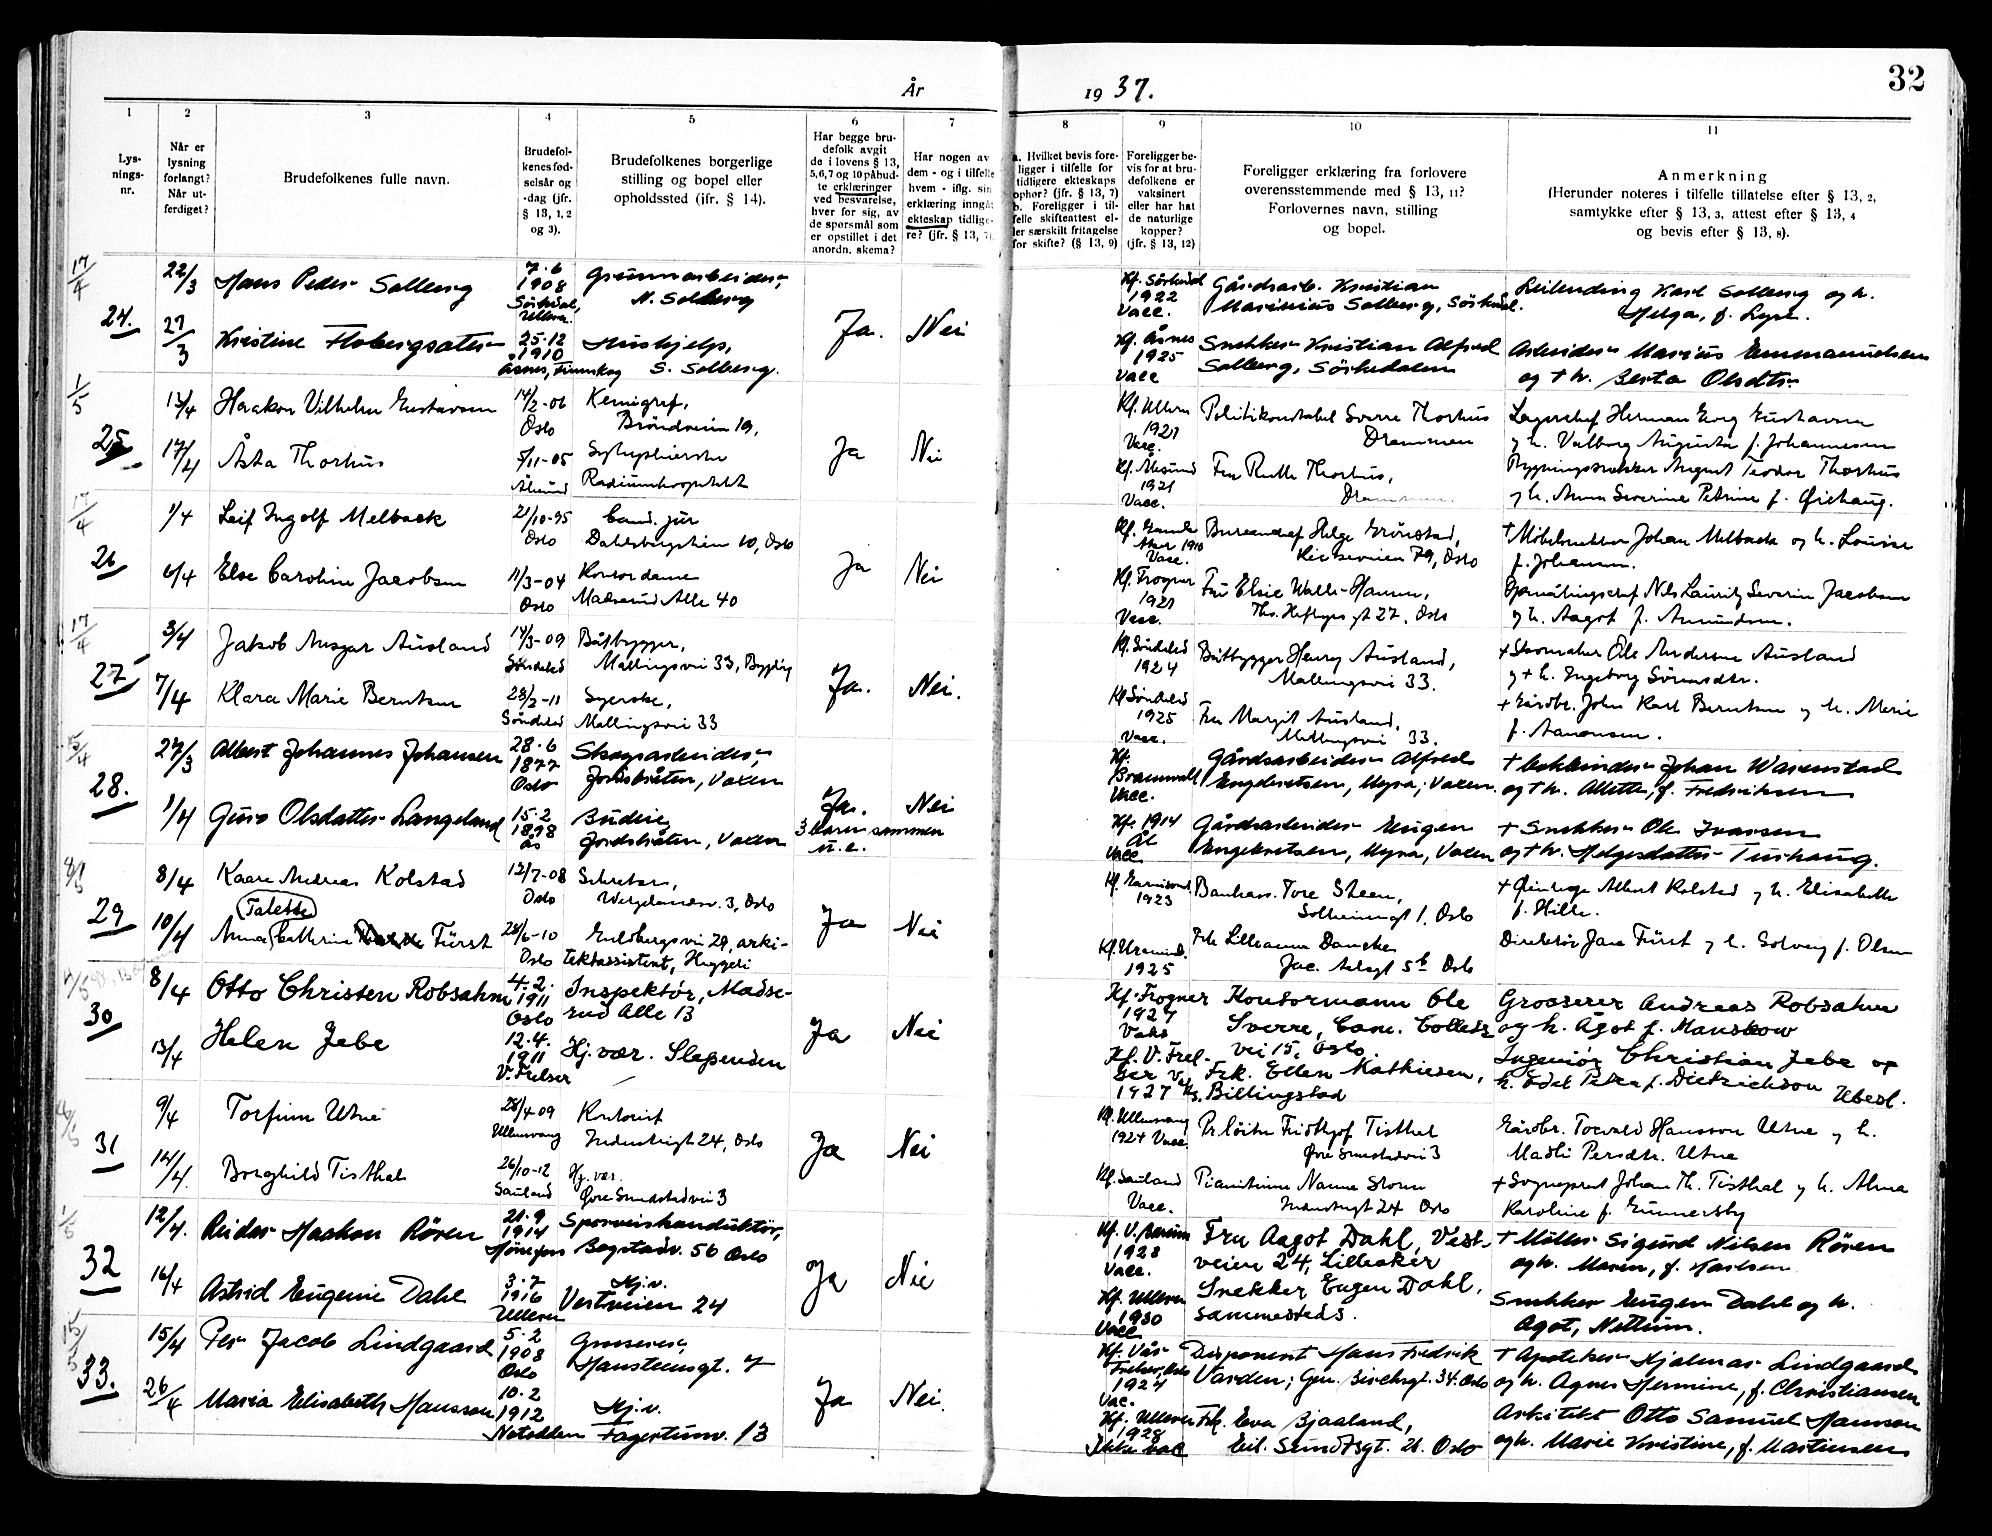 År 1937.
32
1
2
3
4
5
6
7
8
9
10
11
Lysnings-
nr.
Når er
lysning
forlangt?
Når ut-
ferdiget?
Brudefolkenes fulle navn.
Brudefol-
kenes fød-
selsår og
-dag (jfr.
§ 13, 1, 2
og 3).
Brudefolkenes borgerlige
stilling og bopel eller
opholdssted (jfr. § 14).
Har begge bru-
defolk avgit
de i lovens § 13,
5,6,7 og 10 påbud-
te erklæringer
ved besvarelse,
hver for sig, av
de spørsmål som
er opstillet i det
anordn. skema?
Har nogen av
dem - og i tilfelle
hvem - iflg. sin
erklæring inngåt
ekteskap tidlige-
re? (jfr. § 13, 7).
a. Hvilket bevis fore-
ligger i tilfelle for
tidligere ekteskaps
ophør? (jfr. § 13, 7)
b. Foreligger i til-
felle skifteattest el-
ler særskilt fritagelse
for skifte? (§ 13, 9)
Foreligger be-
vis for at bru-
defolkene er
vaksinert
eller har hat
de naturlige
kopper?
(jfr. § 13, 12)
Foreligger erklæring fra forlovere
overensstemmende med § 13, 11?
Forlovernes navn, stilling
og bopel.
Anmerkning
(Herunder noteres i tilfelle tillatelse efter § 13, 2,
samtykke efter § 13, 3, attest efter § 13, 4
og bevis efter § 13, 8).
17/4
24.
22/3
Hans Peder Solberg
7.6
1908
Sørkedal,
Ullern
Grunnarbeider,
N. Solberg
Ja. Nei
Kf. Sørkedal
1922
Vacc.
Gårdsarb. Kristian
Marinius Solberg, Sørkedal.
Leilending Karl Solberg og h.
Helga, f. Lyse.
27/3
Kristine Flobergsæter
25.12
1910
Åsnes, Finnskog
Hushjelp,
S. Solberg.
Kf. Åsnes
1925
Vacc
Snekker Kristian Alfred
Solberg, Sørkedalen
Arbeider Marius Emmanuelsen
og + h. Berta Olsdtr
1/5
25
13/4
Haakon Vilhelm Gustavsen
14/2-06
Oslo
Kemigraf,
Brøndveien 19,
Ja Nei
Kf. Ullern
1921
Vacc.
Politikonstabel Sverre Thorhus
Drammen
Lagerchef Herman Georg Gustavsen
og h. Valborg Augusta f. Johannesen
17/4
Åsta Thorhus
5/11-05
Ålesund
Sykepleierske
Radiumhospitalet
Kf. Ålesund
1921
Vacc.
Fru Ruth Thorhus,
Drammen.
Bygningssnekker August Teodor Thorhus
og h. Anna Severine Petrine f. Øiehaug.
17/4
26
1/4
Leif Ingolf Melbæck
21/10-95
Oslo
Cand. jur
Dahlsbergstien 10, Oslo
Ja Nei
Kf. Gamle
Aker 1910
Vacc.
Bureauchef Helge Grønstad,
79, Oslo
+ Møbelsnekker Johan Melbæck og h. Louise
f. Johansen.
6/4
Else Caroline Jacobsen
11/3-04
Oslo
Kontordame
Madserud Alle 40
Kf. Frogner
1921
Vacc.
Fru Elsie Walle-Hansen,
Ths. Heftyes gt 27, Oslo
Opmålingschef Nils Lauritz Severin Jacobsen
og h. Aagot f. Amundsen.
17/4
27
3/4
Jakob Ansgar Ausland
14/3-09
Søndeled
Båtbygger,
Mallingsvei 33, Bygdøy
Ja. Nei.
Kf. Søndeled
1924
Båtbygger Henry Ausland,
Mallingsvei 33.
+ Skomaker Ole Andersen Ausland
og + h. Ingeborg Sørensdtr.
7/4
Klara Marie Berntsen
28/2-11
Søndeled
Syerske,
Mallingsvei 33
Kf Søndeled
1925
Vacc.
Fru Margit Ausland,
Mallingsvei 33.
+ Gårdbr. John Karl Berntsen og h. Marie
f. Aanonsen.
15/4
28.
27/3
Albert Johannes Johansen
28.6
1877
Oslo
Skogsarbeider,
Jordbråten, Voxen
Ja. Nei
3 barn sammen
Kf.
Vacc.
Gårdsarbeider Alfred
Engebretsen, Myra, Voxen.
+ Johan Warenstad
og + h. Alette, f. Fredriksen
1/4
Guro Olsdatter Langeland
15.2
1898
Ås
Budeie
Jordbråten, Voxen
Kf. 1914
Ål
Vacc
Gårdsarbeider Eugen
Engebretsen, Myra, Voxen
+ Snekker Ole Ivarsen
og + h. Helgesdatter Turhaug.
8/5
29
8/4
Kaare Andreas Kolstad
12/7-08
Oslo
Sekretær,
Wergelandsv. 3, Oslo
Ja Nei
Kf. Garnison
1923
Bankass. Tore Steen,
Solheimgt 1, Oslo
+ Øienlæge Albert Kolstad og h. Elisabeth
f. Hille.
10/4
Talette
Anna Cathrine Fürst
28/6-10
Oslo
Guldbergsvei 28, arki-
tektassistent, Heggeli
Kf. Uranienb.
1925
Frk Lilleanna Dancke
Jac. Aalsgt 5b Oslo
Direktør Jan Fürst og h. Solveig f. Olsen
30
8/4
Otto Christen Robsahm
4.2.
1911
Oslo
Inspektør, Madse-
rud Alle 13
Ja Nei
Kf. Frogner
1927
Vaks
Kontormann Ole
Sverre, Cam. Colletts
vei 15, Oslo
Grosserer Andreas Robsahm
og h. Ågot f. Manskow
13/4
Helen Jebe
12.4.
1911
V. Frelser
Hj.vær. Slependen
Kf. V. Frel-
ser Vaks
1927
Frk. Ellen Mathiesen,
Billingstad
Ingeniør Christian Jebe og
h. Edel Petra f. Dietrichson Ubesl.
31
9/4
Torfinn Utne
28/4 09
Ullensvang
Kontorist
Industrigt 24, Oslo
Ja Nei
Kf. Ullensvang
1924 Vacc.
Fridthjof Tisthal
Øvre Smestadvei 3
Gårdbr. Torvald Hansson Utne og h.
Madli Persdtr. Utne
14/4.
Borghild Tisthal
26/10-12
Sauland
Hj. vær.
Øvre Smestadvei 3
Kf. Sauland
Vacc.
Pianistinne Nanne Storm
Industrigt 24 Oslo
+ Sogneprest Johan Th. Tisthal og h. Alma
Karoline f. Gunnersby
1/5
32
12/4.
Reidar Haakon Røren
21.9
1914
Hønefoss
Sporveiskonduktør,
Bogstadv. 56 Oslo
Ja Nei
Kf. V. Bærum
1928
Vacc.
Fru Aagot Dahl, Vest-
veien 24, Lilleaker
+ Møller Sigurd Nilsen Røren
og h. Maren, f. Karlsen
16/4
Astrid Eugenie Dahl
3.7
1916
Ullern
Hj.v.
Vestveien 24
Kf. Ullern
1930
Vacc
Snekker Eugen Dahl,
sammesteds.
Snekker Eugen Dahl og h.
Agot, Nettum.
15/5
33.
15/4
Per Jacob Lindgaard
5.2
1908
Oslo
Grosserer,
Hansteensgt. 7
Ja Nei.
Kf. Vår
Frelser, Oslo
1924
Vac.
Disponent Hans Fredrik
Varden, Gen. Birchsgt. 34. Oslo
+ Apoteker Hjalmar Lindgaard
og h. Agnes Hermine, f. Christiansen
26/4
Maria Elisabeth Hansson
10.2
1912
Notodden
Hj.v.
Fagertunv. 13
Kf. Ullern
1928
Ikke vac
Frk. Eva Bjaaland,
Eil. Sundtsgt. 21. Oslo
Arkitekt Otto Samuel Hansson
og h. Marie Kristine, f. Martinsen